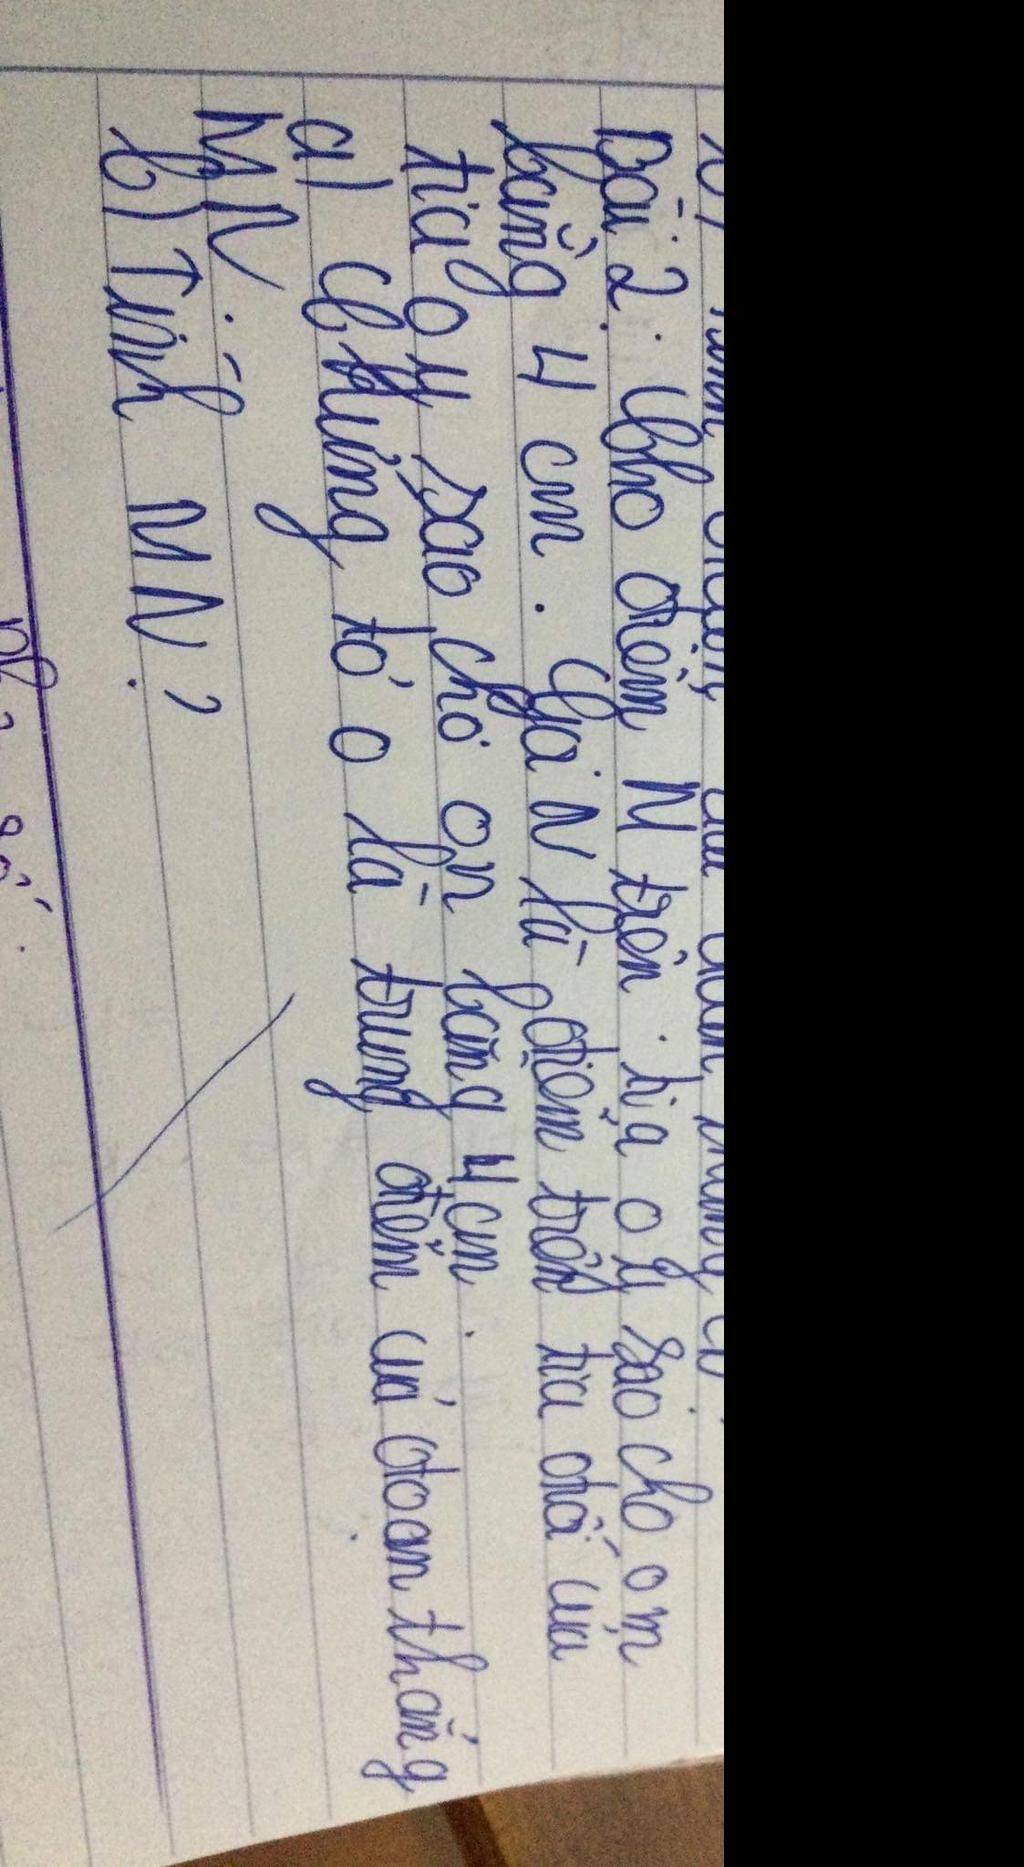 Bài 2: Cho điểm M trên tia oy sao cho om
bằng 4 cm. Gọi N là điểm trên tia đối của
tia oy sao cho on bằng 4cm.
a) Chứng tỏ o là trung điểm của đoạn thẳng
MN.
b) Tính MN?